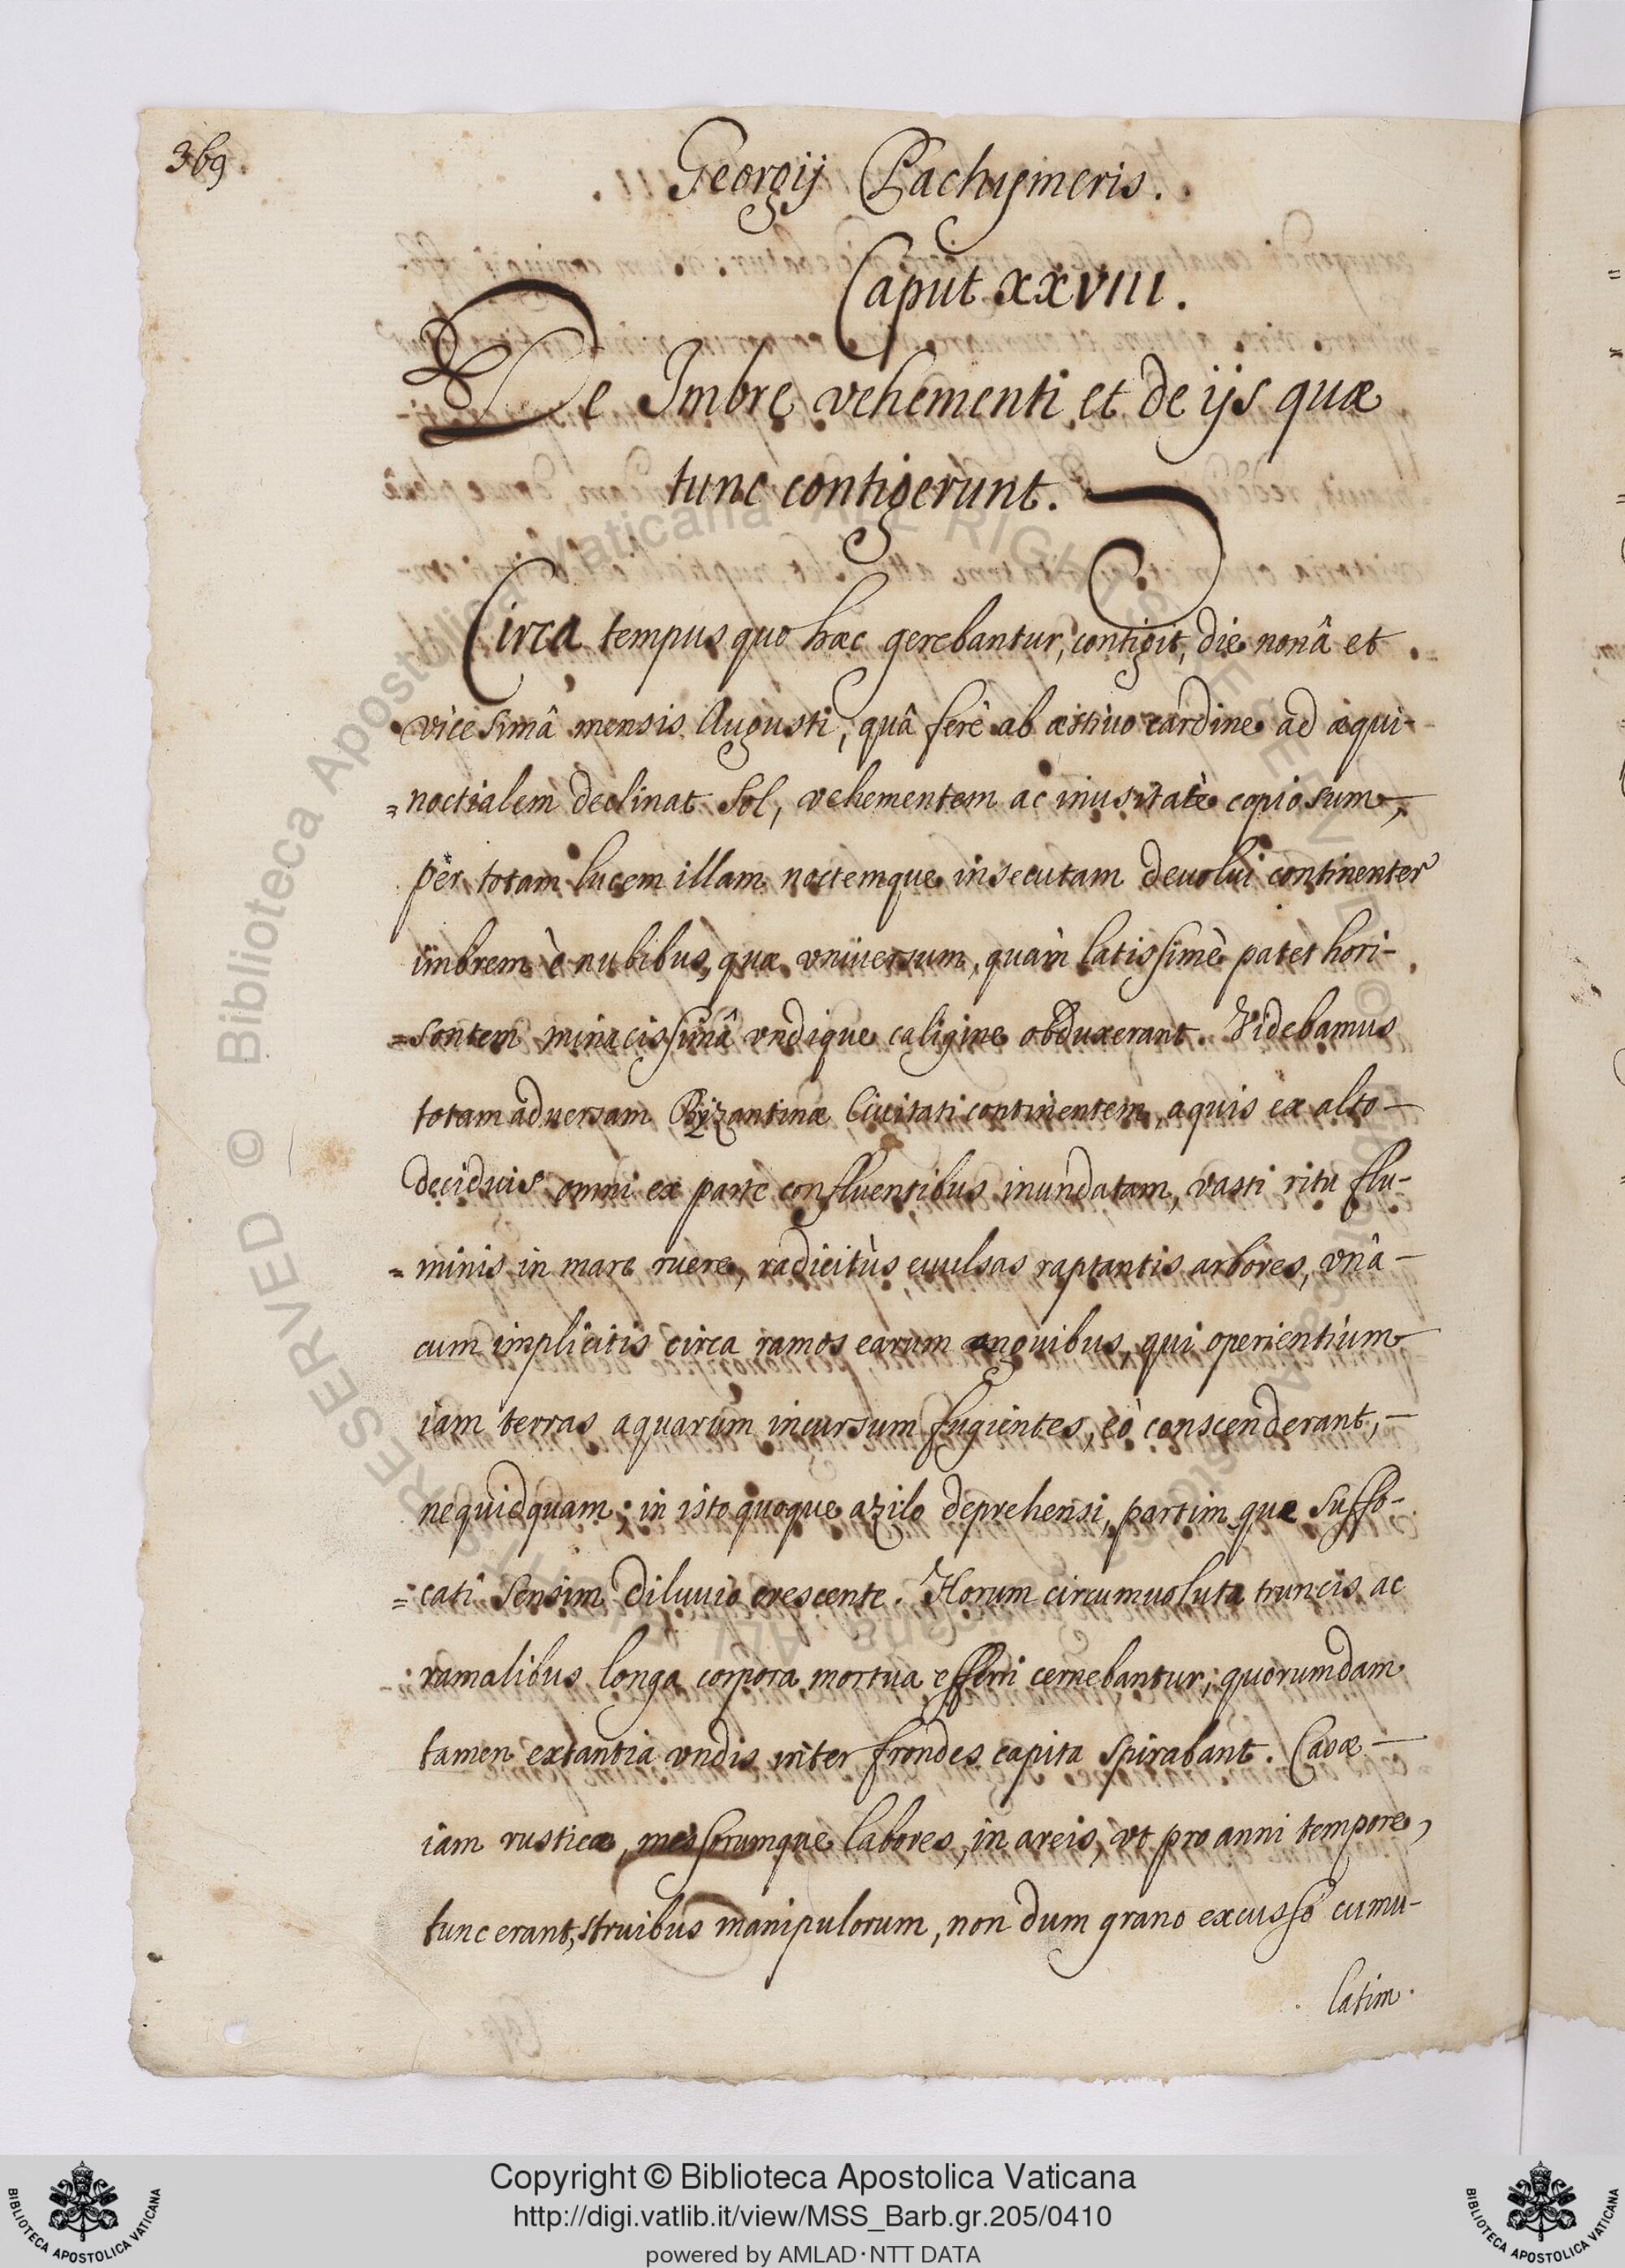 369.
Georgij Pachymeris.
Caput XXVIII.
De Imbre vehementi et de ijs quæ
tunc contigerunt.
Circa tempus quo hæc gerebantur, contigit, die nonâ et
vicesimâ mensis Augusti, quâ ferè ab æstiuo cardine ad æqui-
=noctialem declinat Sol, vehementem ac inusitatè copiosum,
per totam lucem illam noctemque insecutam deuolui continenter
imbrem è nubibus, quæ vniuersum, quàm latissimè patet hori-
=sontem minacissimâ vndique caligine obduxerant. Videbamus
totam aduersam Byzantinæ Ciuitati continentem, aquis ex alto
deciduis omni ex parte confluentibus inundatam, vasti ritu flu-
=minis in mare ruere, radicitùs euulsas raptantis arbores, vnâ
cum implicitis circa ramos earum anguibus, qui operientium
iam terras aquarum incursum fugientes, eò conscenderant,
nequidquam; in isto quoque azilo deprehensi, partim quæ suffo-
=cati sensim diluuio crescente. Horum circumuoluta truncis ac
ramalibus longa corpora mortua efferri cernebantur; quorumdam
tamen extantia vndis inter frondes capita spirabant. Casæ
iam rusticæ, messorumque labores, in areis, vt pro anni tempore,
tunc erant, struibus manipulorum, non dum grano excusso cumu-
latim.
© Biblioteca Apostolica Vaticana ALL RIGHTS RESERVED
© Biblioteca Apostolica Vaticana ALL RIGHTS RESERVED
Copyright © Biblioteca Apostolica Vaticana
http://digi.vatlib.it/view/MSS_Barb.gr.205/0410
powered by AMLAD·NTT DATA
BIBLIOTECA APOSTOLICA VATICANA
BIBLIOTECA APOSTOLICA VATICANA